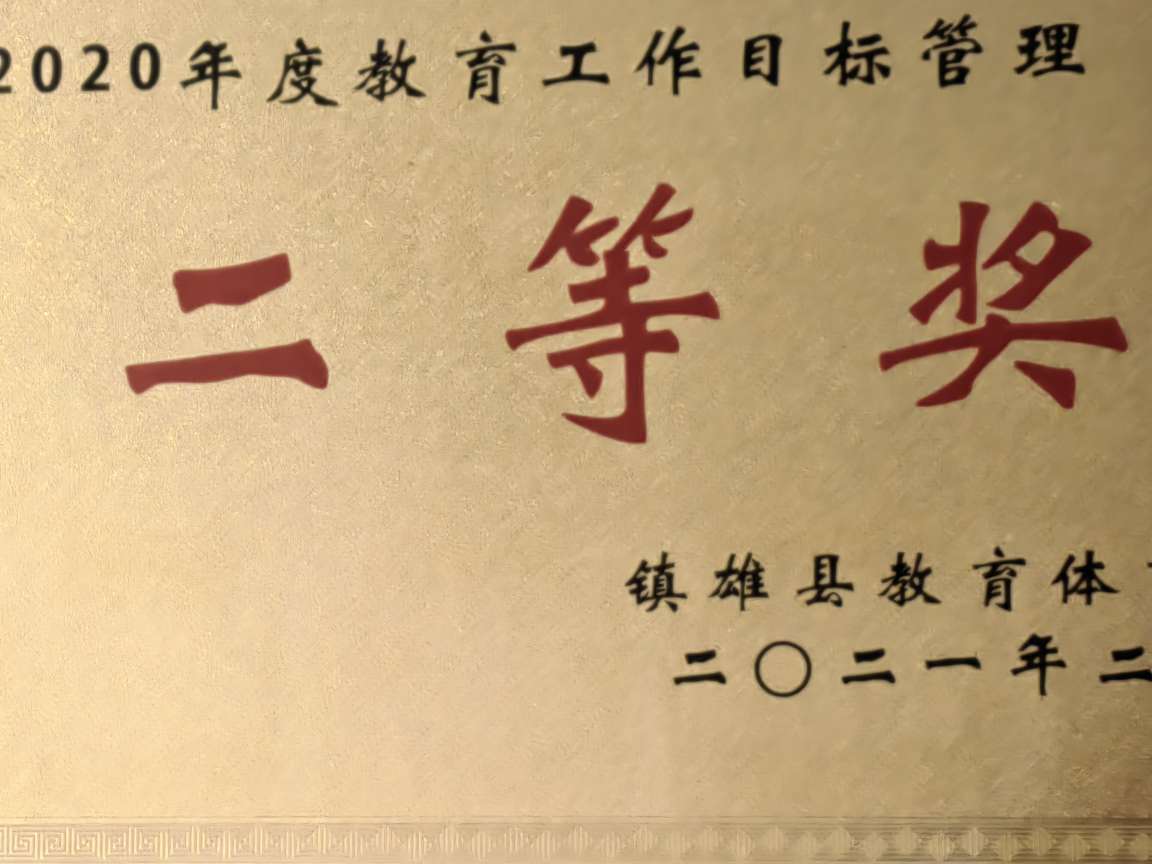 2020年度教育工作目标管理
二等奖
镇雄县教育体
二〇二一年二